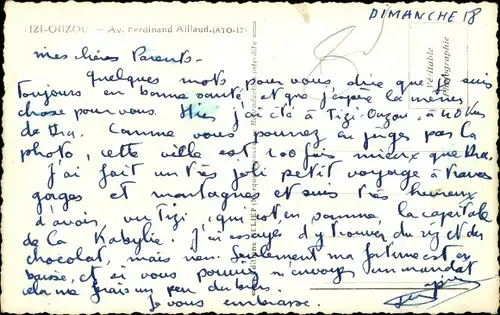 DIMANCHE 18
TIZI-OUZOU — Av. Ferdinand Aillaud. (ATO-17)
Véritable
Photographie
mes chères Parents -
quelques mots pour vous dire que je suis
toujours en bonne santé, et que j'espère la même
chose pour vous. Hier j'ai été à Tizi-Ouzou, à 40 Km
de Dra. Comme vous pourrez en juger par la
photo, cette ville est 100 fois mieux que Dra.
J'ai fait un très joli petit voyage à travers
gorges et montagnes et suis très heureux
d'avoir vu Tizi, qui est en somme, la capitale
de la Kabylie. J'ai essayé d'y trouver du riz et du
chocolat, mais rien. Seulement ma fortune est en
baisse, et si vous pouviez m'envoyer un mandat
cela me ferais un peu du bien.
je vous embrasse.